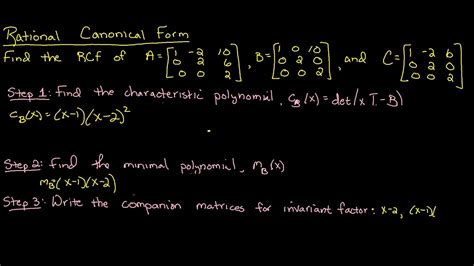 Rational Canonical Form
Find the RCF of A=[1 -2 10; 0 2 6; 0 0 2], B=[1 0 10; 0 2 0; 0 0 2], and C=[1 -2 6; 0 2 0; 0 0 2]
Step 1: Find the characteristic polynomial, C_B(x)=det(xI-B)
C_B(x)=(x-1)(x-2)²
Step 2: Find the minimal polynomial, m_B(x)
m_B=(x-1)(x-2)
Step 3: Write the companion matrices for invariant factor: x-2, (x-1)(